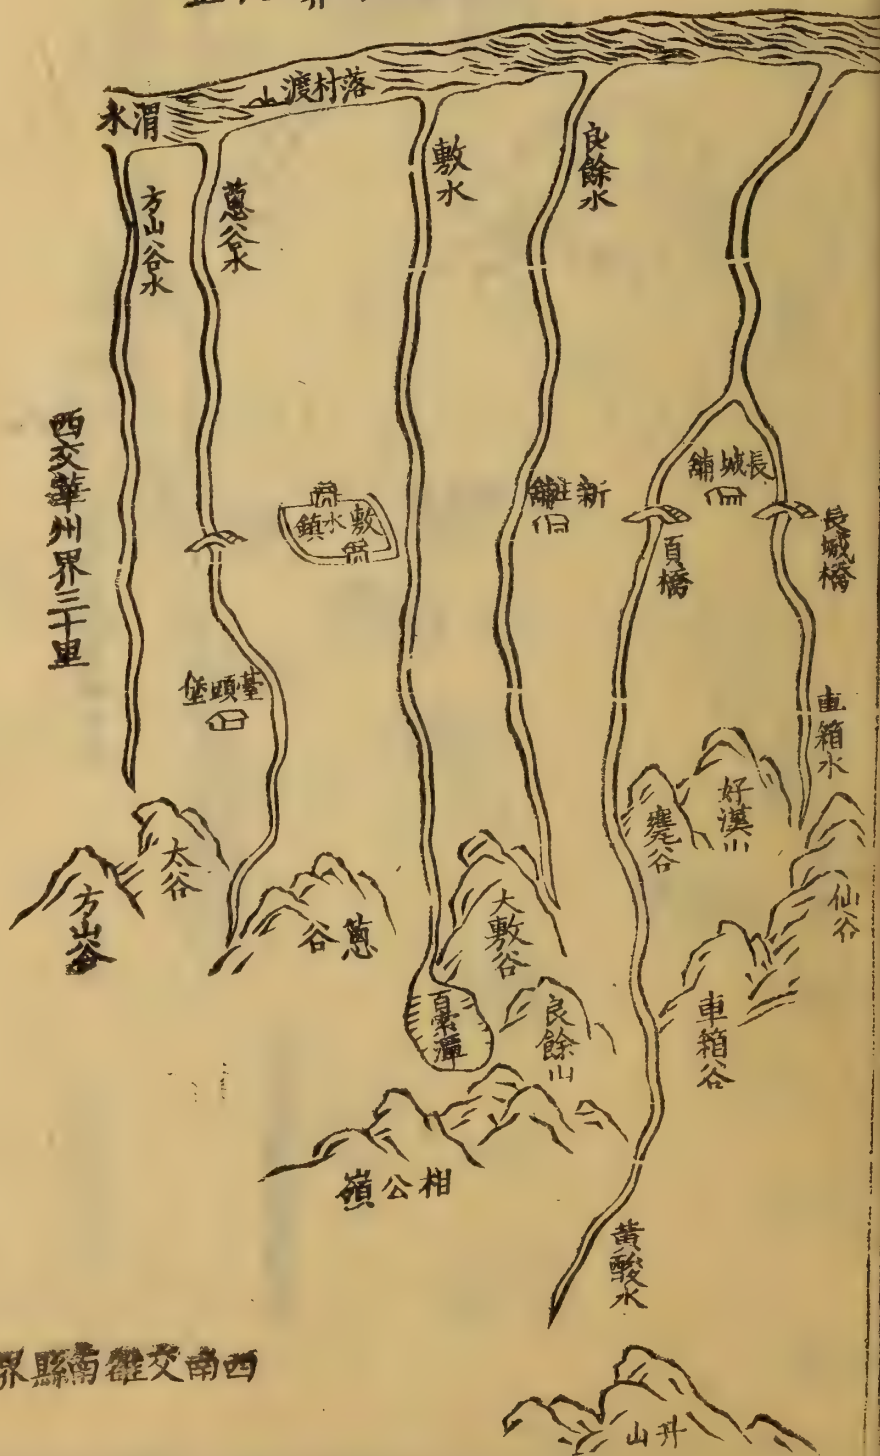 渭水
落村渡
方山谷水
蔥谷水
敷水
良餘水
西交華州界三十里
敷水鎮
新莊鋪
長城鋪
頁橋
長城橋
臺頭堡
車箱水
好漢山
甕谷
仙谷
太谷
方山谷
蔥谷
大敷谷
良餘山
車箱谷
相公嶺
黃酸水
西南交雒南縣界
升山